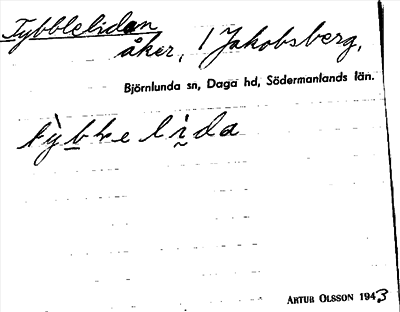 Tybblelidan
åker, / Jakobsberg,
Björnlunda sn, Daga hd, Södermanlands län.
Artur Olsson 1943